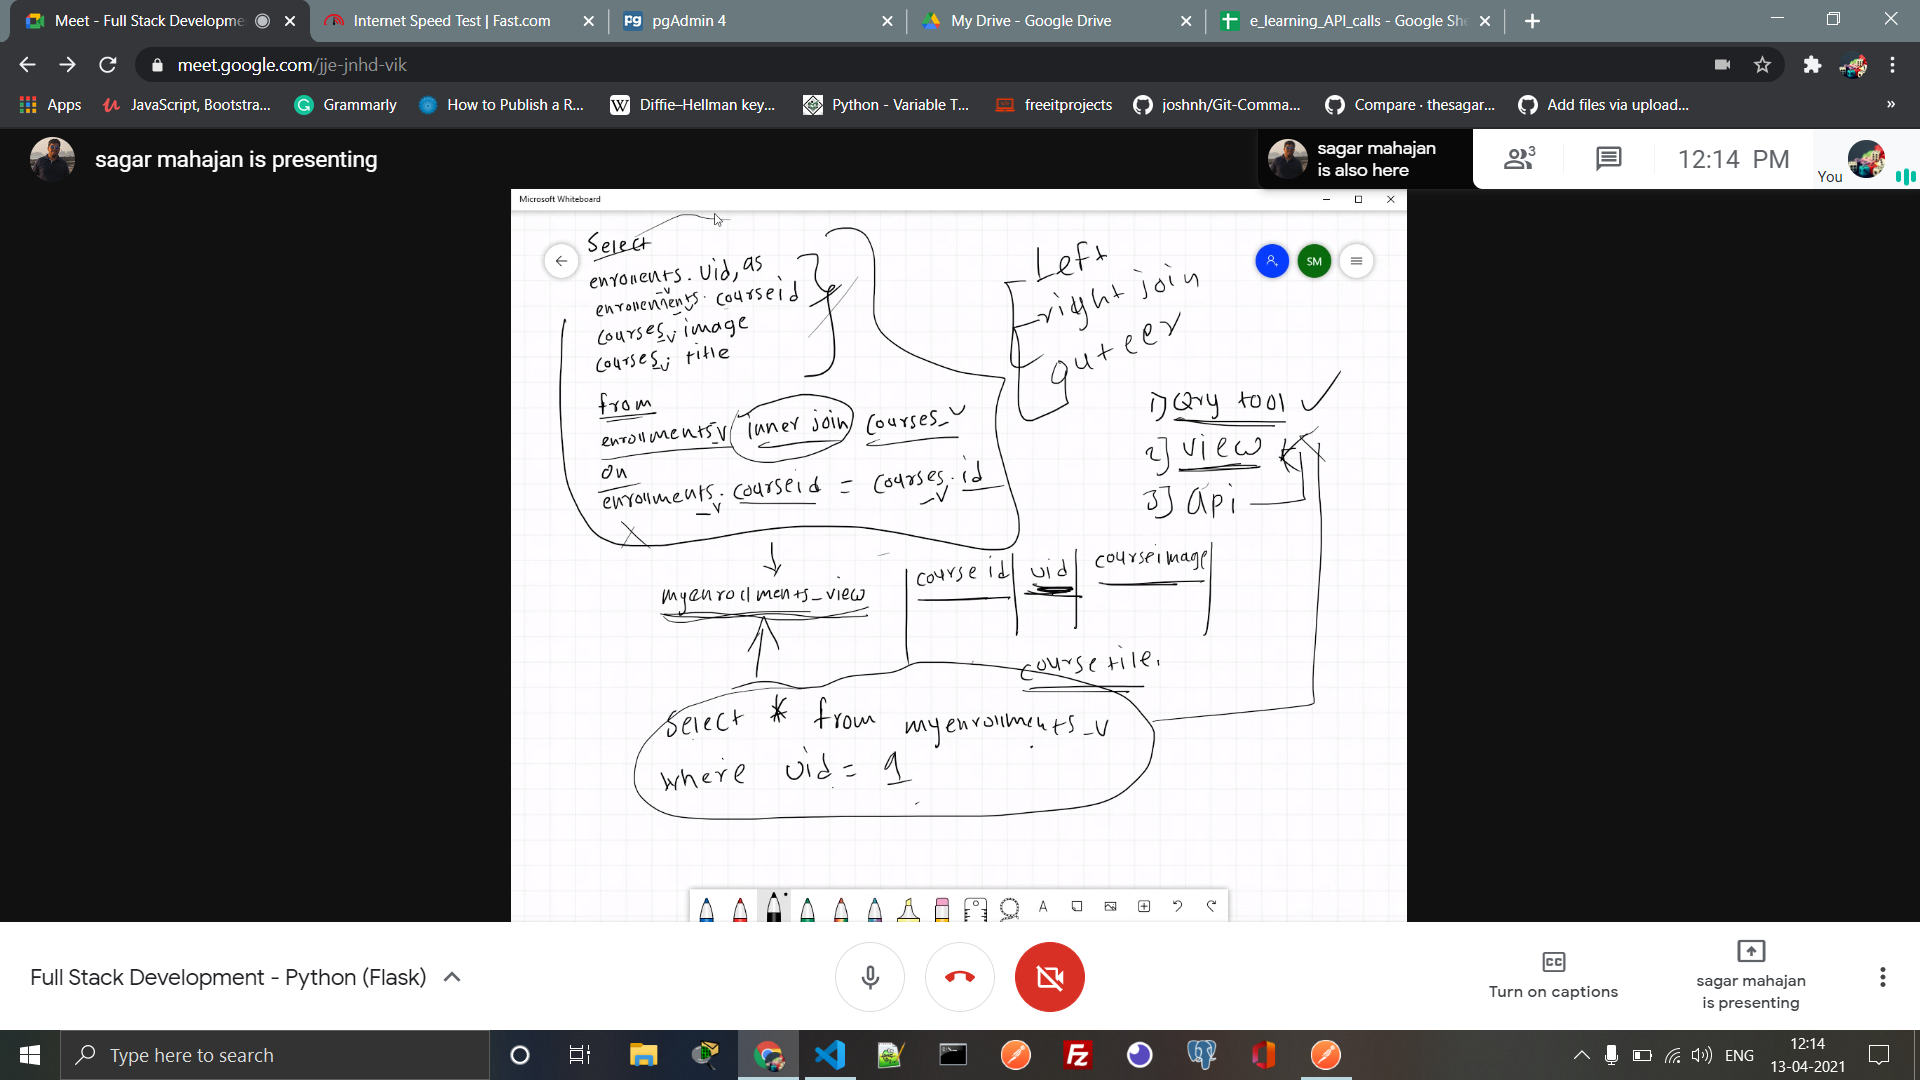 Meet - Full Stack Developme
Internet Speed Test | Fast.com
pgAdmin 4
My Drive - Google Drive
e_learning_API_calls - Google She
meet.google.com/jje-jnhd-vik
Apps
JavaScript, Bootstra...
Grammarly
How to Publish a R...
Diffie–Hellman key...
Python - Variable T...
freeitprojects
joshnh/Git-Comma...
Compare · thesagar...
Add files via upload...
»
sagar mahajan is presenting
sagar mahajan
is also here
3
12:14 PM
You
Microsoft Whiteboard
SM
Select
enrollents. uid, as
enrollenments_v. courseid
courses_v. image
courses_v. title
from
enrollments_v inner join courses_v
on
enrollments_v. courseid = courses_v. id
Left
right join
outeer
1) Qry tool
2] view
3] api
myenrollments_view
course id
uid
courseimage
course tile.
Select * from myenrollments_v
where uid = 1
Full Stack Development - Python (Flask)
Turn on captions
sagar mahajan
is presenting
Type here to search
ENG
12:14
13-04-2021